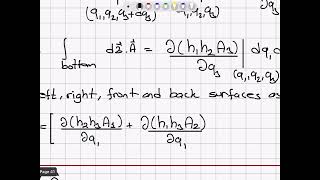 (q₁,q₂,q₃+dq₃) (q₁,q₂,q₃) ∂q₃
∫ bottom d𝑎⃗·A⃗ = ∂(h₁h₂A₃)/∂q₃ | (q₁,q₂,q₃) dq₁
eft, right, front and back surfaces as
= [ ∂(h₂h₃A₁)/∂q₁ + ∂(h₁h₃A₂)/∂q₁
Page 41